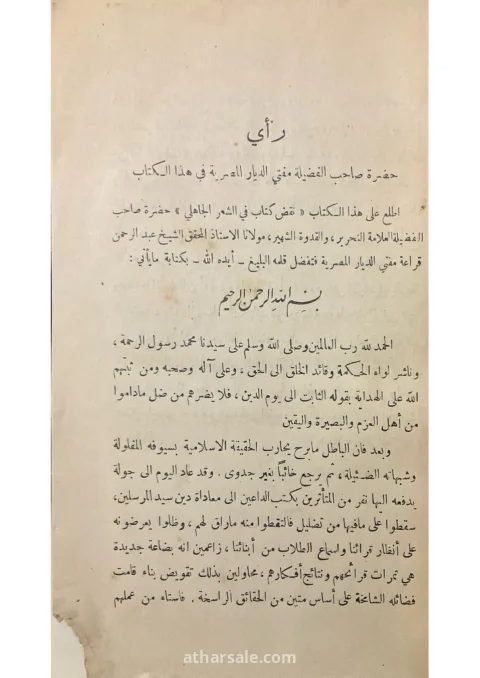 رأي
حضرة صاحب الفضيلة مفتي الديار المصرية في هذا الكتاب
اطلع على هذا الكتاب « نقض كتاب في الشعر الجاهلي » حضرة صاحب
الفضيلة العلامة النحرير، والقدوة الشهير، مولانا الاستاذ المحقق الشيخ عبد الرحمن
قراعة مفتي الديار المصرية فتفضل قلمه البليغ ـ أيده الله ـ بكتابة مايأتي :
بسم الله الرحمن الرحيم
الحمد لله رب العالمين وصلى الله وسلم على سيدنا محمد رسول الرحمة ،
وناشر لواء الحكمة وقائد الخلق الى الحق ، وعلى آله وصحبه ومن ثبتهم
الله على الهداية بقوله الثابت الى يوم الدين ، فلا يضرهم من ضل ماداموا
من أهل العزم والبصيرة واليقين
وبعد فان الباطل مابرح يحارب الحقيقة الاسلامية بسيوفه المفلولة
وشبهاته الضئيلة ، ثم يرجع خائباً بغير جدوى . وقد عاد اليوم الى جولة
يدفعه اليها نفر من المتأثرين بكتب الداعين الى معاداة دين سيد المرسلين،
سقطوا على مافيها من تضليل فالتقطوا منه ماراق لهم ، وظلوا يعرضونه
على أنظار قرائنا واسماع الطلاب من أبنائنا ، زاعمين انه بضاعة جديدة
هي ثمرات قرائحهم ونتائج أفكارهم ، محاولين بذلك تقويض بناء قامت
فضائله الشامخة على أساس متين من الحقائق الراسخة . فاستاء من عملهم
atharsale.com